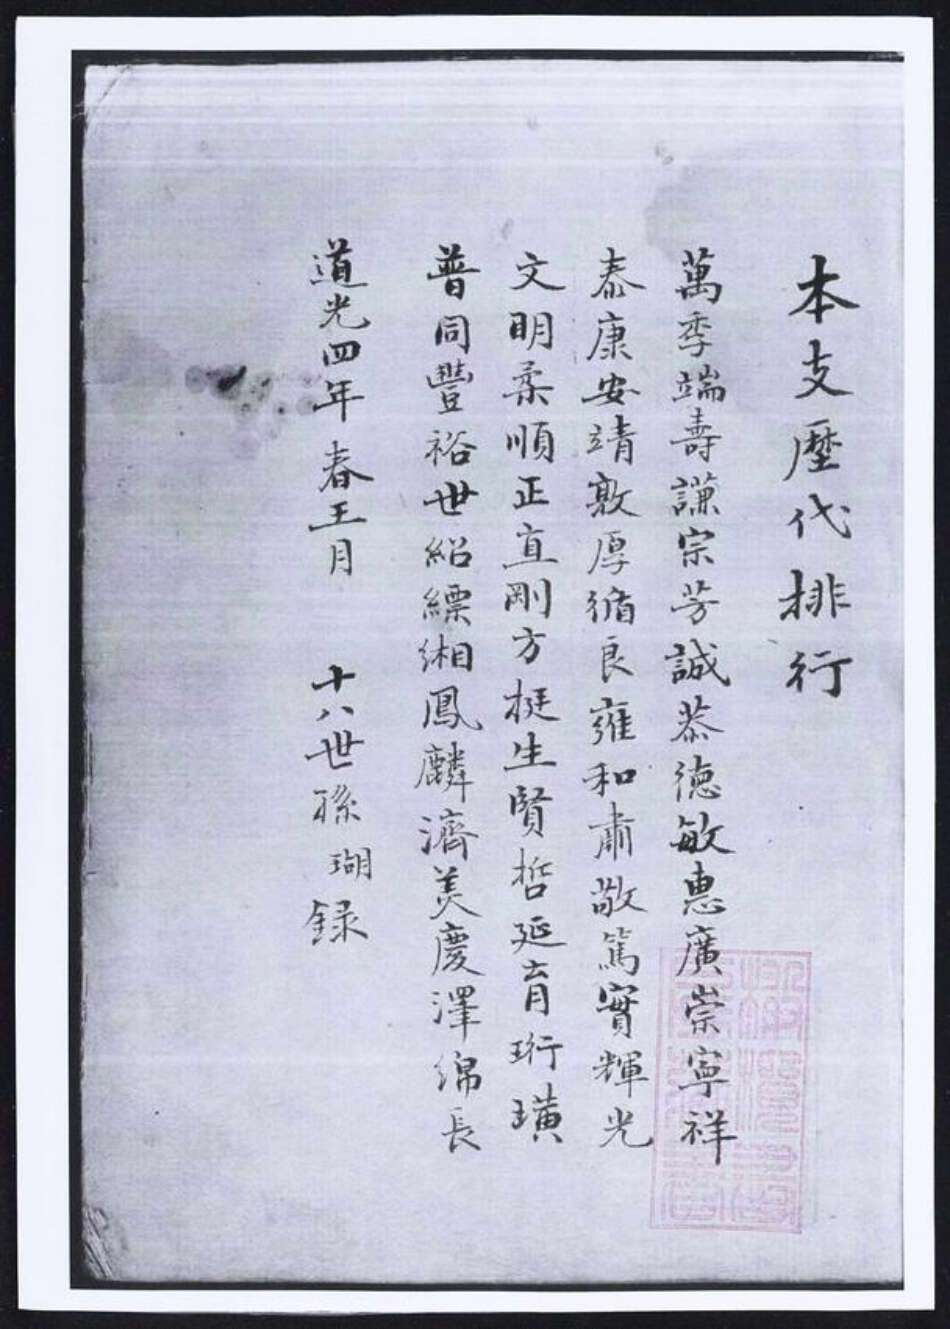 本支歷代排行
萬季端壽謙宗芳誠恭德敏惠廣崇寧祥
泰康安靖敦厚循良雍和肅敬篤實輝光
文明柔順正直剛方挺生賢哲延育珩璜
普同豐裕世紹縹緗鳳麟濟美慶澤綿長
道光四年春王月 十八世孫瑚錄